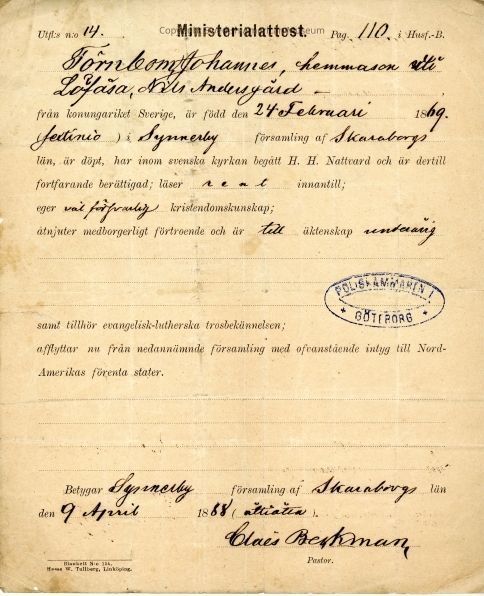 Utfls n:o 14. Ministerialattest. Pag. 110. i Husf.-B.
Törnbom Johannes, hemmason uti
Löfåsa, Nils Andersgård –
från konungariket Sverige, är född den 24 Februari 1869.
(sextinio) i Synnerby församling af Skaraborgs
län, är döpt, har inom svenska kyrkan begått H. H. Nattvard och är dertill
fortfarande berättigad; läser rent innantill;
eger väl försvarlig kristendomskunskap;
åtnjuter medborgerligt förtroende och är till äktenskap underårig
POLISKAMMAREN I
GÖTEBORG
samt tillhör evangelisk-lutherska trosbekännelsen;
afflyttar nu från nedannämnde församling med ofvanstående intyg till Nord-
Amerikas förenta stater.
Betygar Synnerby församling af Skaraborgs län
den 9 April 1888 (åttiåtta).
Claës Beckman,
Pastor.
Blankett N:o 134.
Hos W. Tullberg, Linköping.